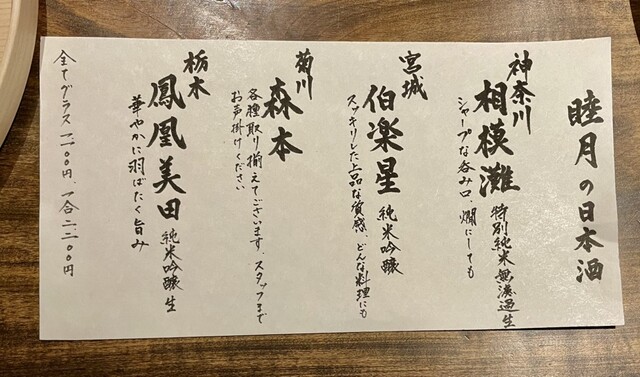 睦月の日本酒
神奈川
相模灘 特別純米無濾過生
シャープな呑み口、燗にしても
宮城
伯楽星 純米吟醸
スッキリした上品な質感、どんな料理にも
菊川
森本
各種取り揃えてございます、スタッフまで
お声掛けください
栃木
鳳凰美田 純米吟醸生
華やかに羽ばたく旨み
全てグラス 一二〇〇円、一合二二〇〇円